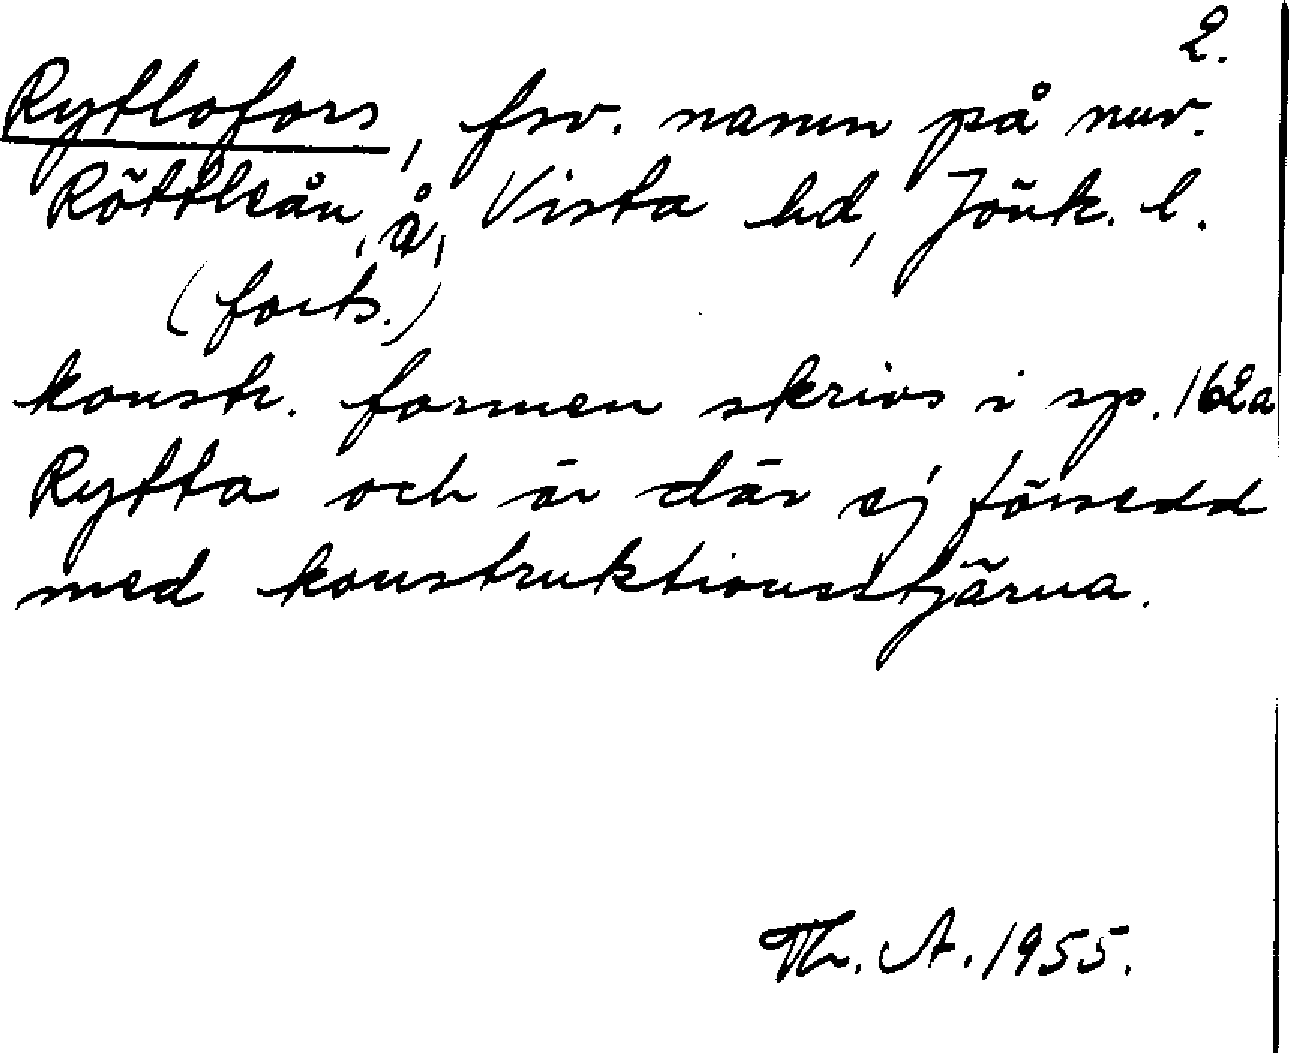 2.
Rytlofors, fsv. namn på nuv.
Röttleån, å, Vista hd, Jönk. l.
(forts.)
konstr. formen skrivs i sp. 162a
Rytta och är där ej försedd
med konstruktionsstjärna.
Th. A. 1955.